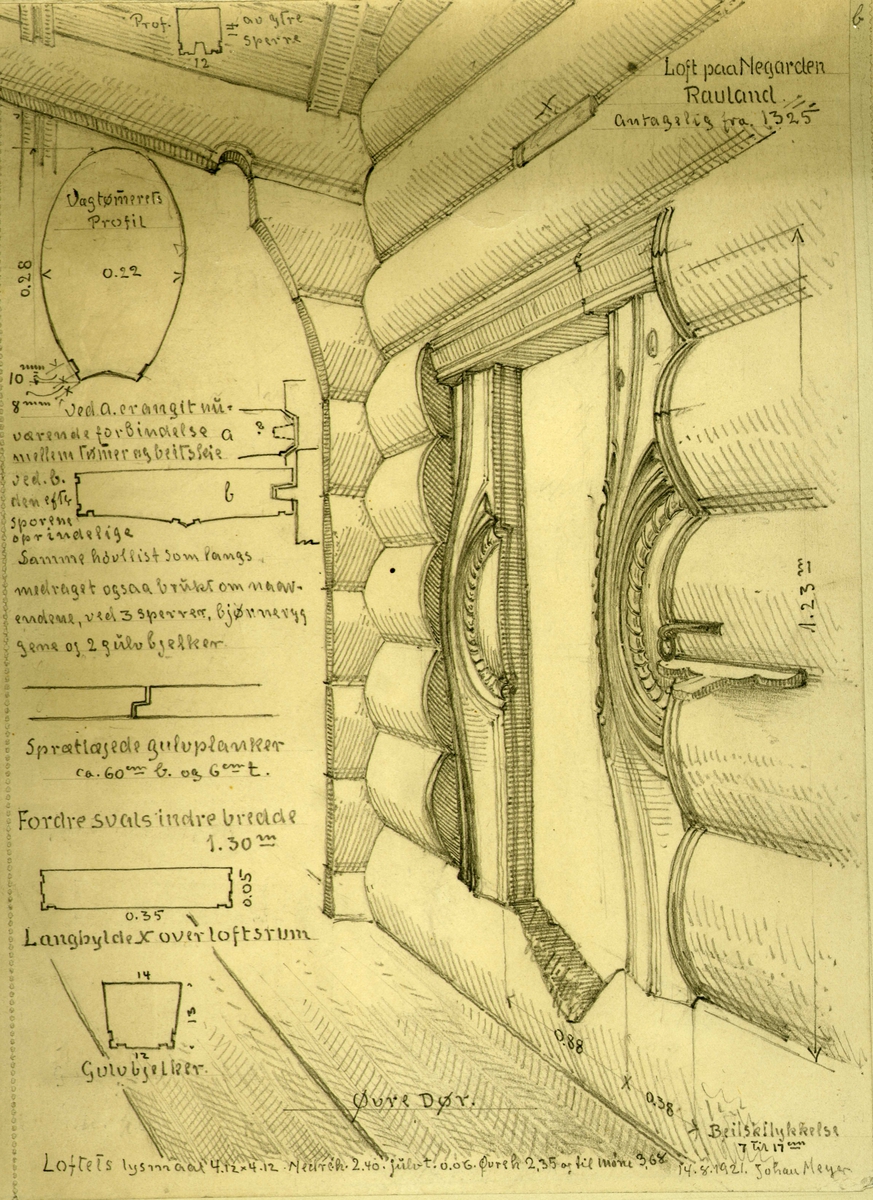 b
Prof. av ytre
sperre
12
Loft paa Negarden
Rauland.
Antagelig fra. 1325
X
Vægtømrets
Profil
0.22
0.28
10
8 mm
ved a. er angit nu-
værende forbindelse a
mellem tømer og beitskie
ved. b.
den efter
sporene
oprindelige
b
Samme hövllist som langs
medraget ogsaa brukt om naav-
endene, ved 3 sperrer, bjørneryg
gene og 2 gulvbjelker
Gulvplanker
ca. 60 cm b. og 6 cm t.
Fordre svals indre bredde
1.30 m
0.05
0.35
Langhylde X over loftsrum
14
12
Gulvbjelker.
1.23 m
0.88
X
0.38
Øvre Dør.
7 til 17 cm
Loftets lysmaal 4.12 x 4.12. Nedre h. 2.40. gulv t. 0.06. Øvre h 2,35 og til møne 3,68
14.8.1921. Johan Meyer